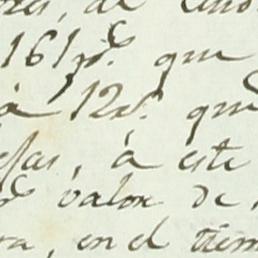 de
161ps. que
à 12rs. que
esas, à este
valor de
ra, en el tiem